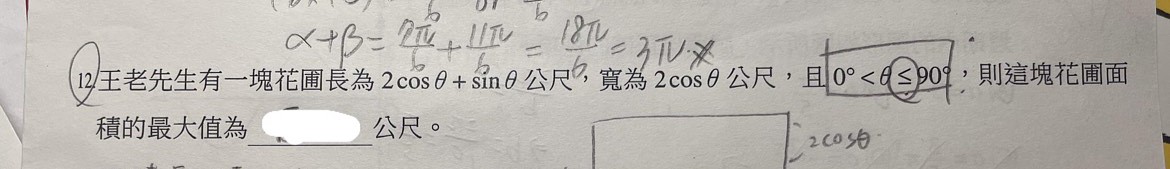 α+β = 7π/6 + 11π/6 = 18π/6 = 3π
12 王老先生有一塊花圃長為 2cosθ + sinθ 公尺,寬為 2cosθ 公尺,且 0° < θ ≤ 90°,則這塊花圃面
積的最大值為 公尺。
2cosθ